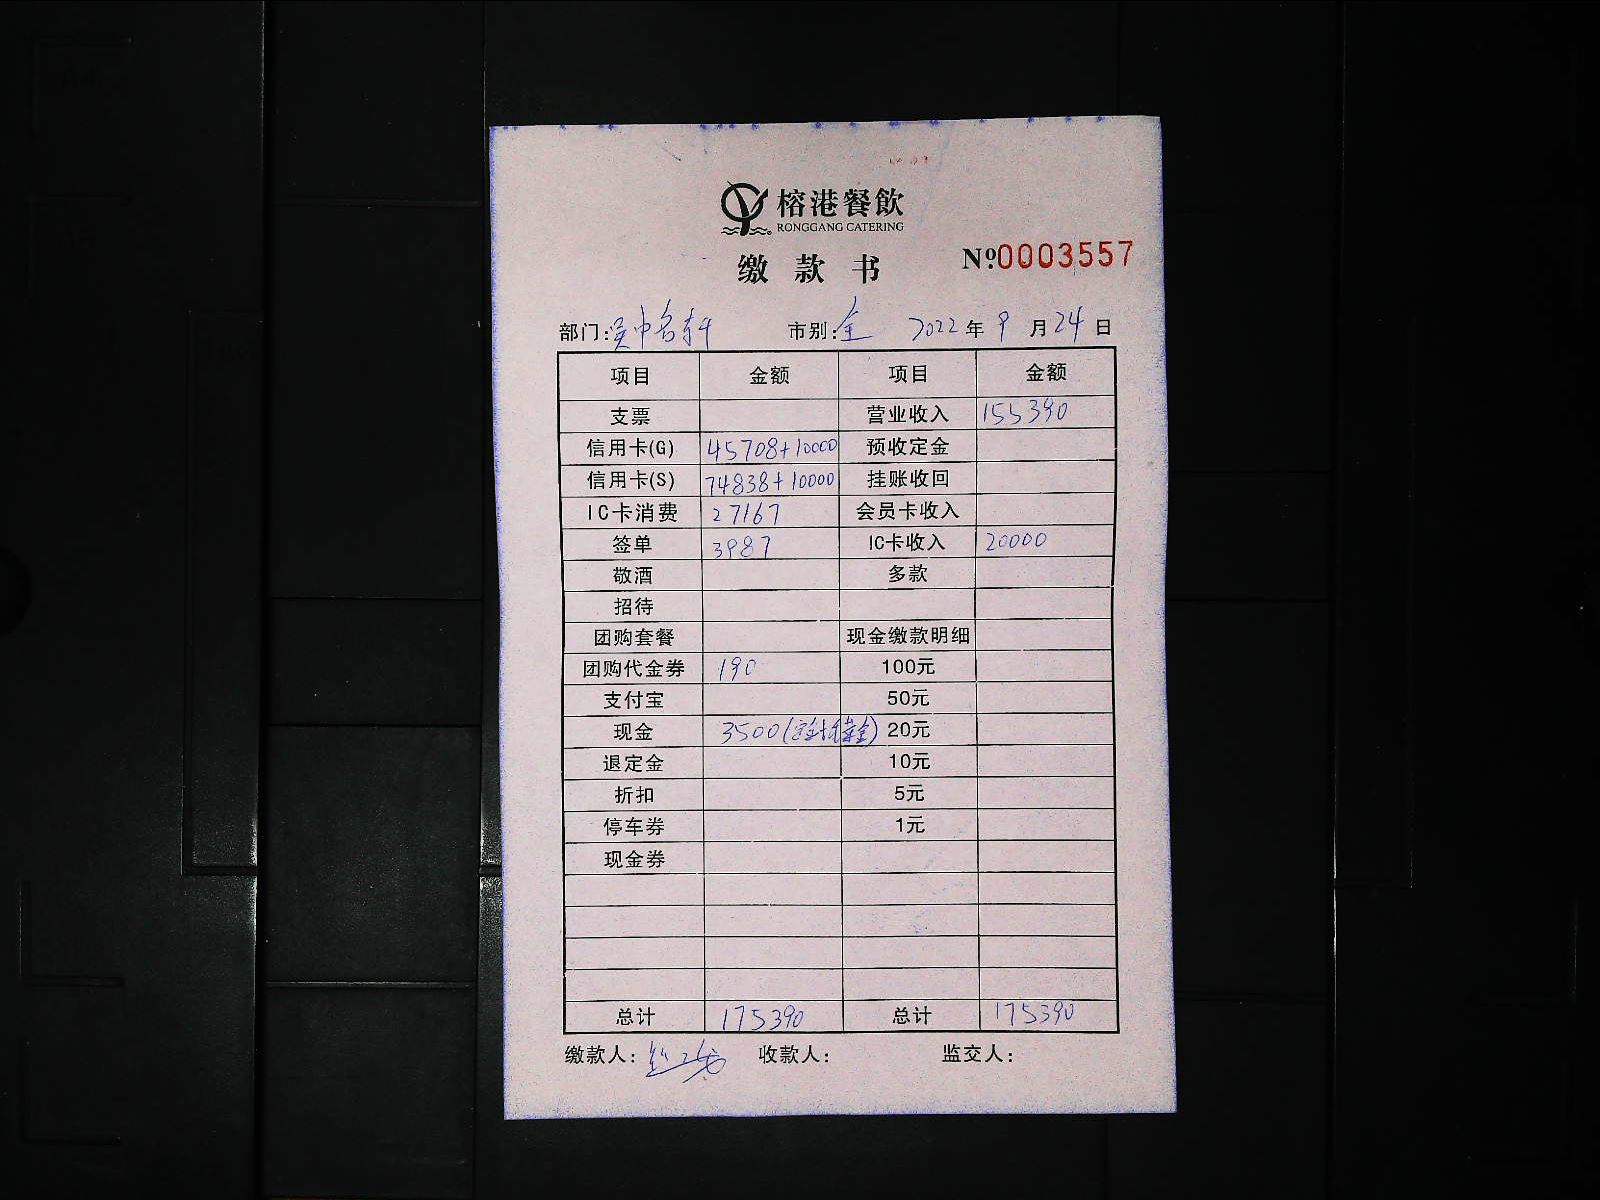 榕港餐飲
RONGGANG CATERING
缴款书 №0003557
部门:吴中名轩 市别:全 2022年9月24日
项目 金额 项目 金额
支票 营业收入 155390
信用卡(G) 45708+10000 预收定金
信用卡(S) 74838+10000 挂账收回
IC卡消费 27167 会员卡收入
签单 3987 IC卡收入 20000
敬酒 多款
招待
团购套餐 现金缴款明细
团购代金券 190 100元
支付宝 50元
现金 3500 20元
退定金 10元
折扣 5元
停车券 1元
现金券
总计 175390 总计 175390
缴款人: 收款人: 监交人: